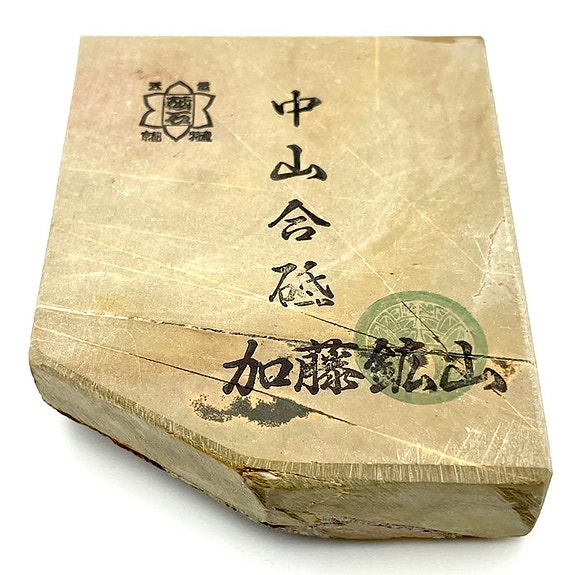 砥石
中山合砥
加藤鉱山